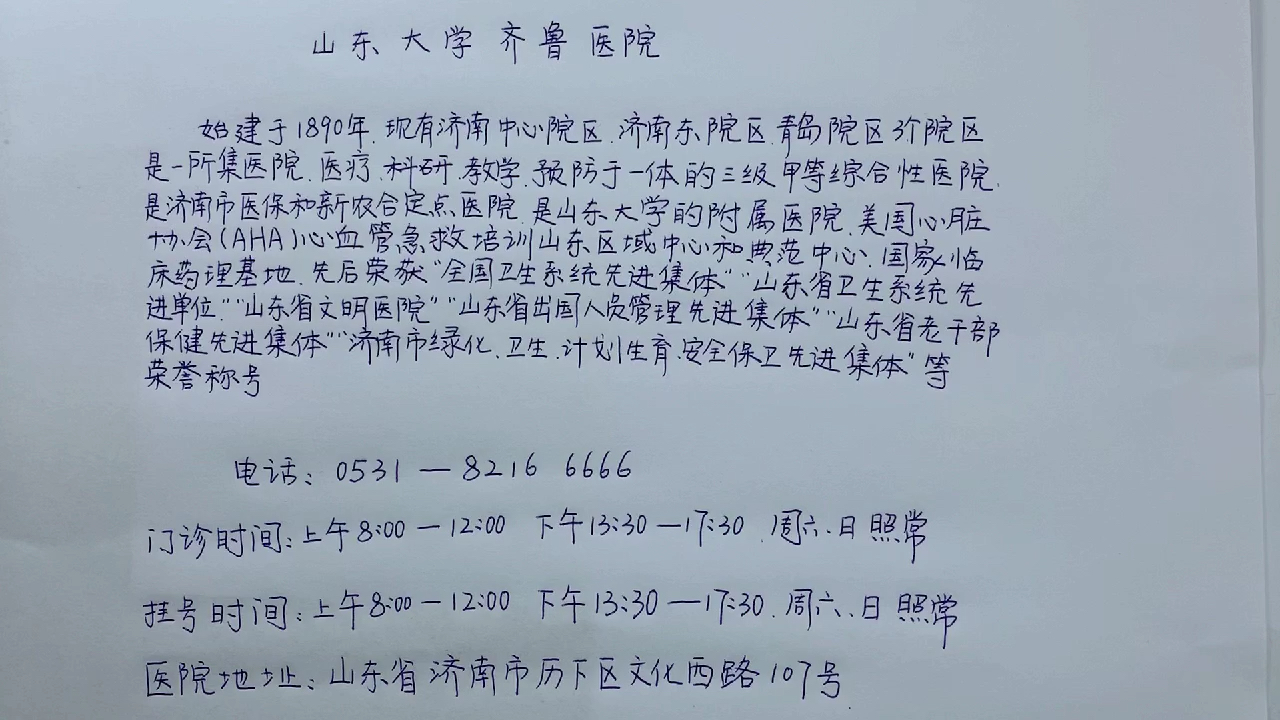 山东大学齐鲁医院
始建于1890年.现有济南中心院区.济南东院区.青岛院区3个院区
是一所集医院.医疗.科研.教学.预防于一体的三级甲等综合性医院.
是济南市医保和新农合定点医院.是山东大学的附属医院.美国心脏
协会(AHA)心血管急救培训山东区域中心和典范中心.国家临
床药理基地.先后荣获"全国卫生系统先进集体""山东省卫生系统先
进单位.""山东省文明医院""山东省出国人员管理先进集体""山东省老干部
保健先进集体""济南市绿化.卫生.计划生育.安全保卫先进集体"等
荣誉称号
电话：0531—8216 6666
门诊时间：上午8:00—12:00 下午13:30—17:30.周六.日照常
挂号时间：上午8:00—12:00 下午13:30—17:30.周六.日照常
医院地址：山东省济南市历下区文化西路107号